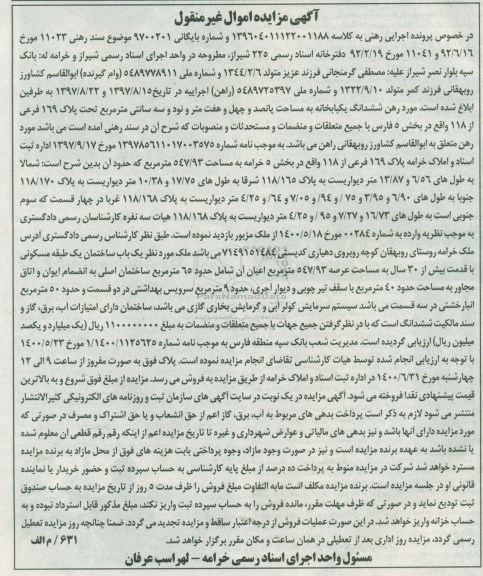 آگهی مزایده اموال غیرمنقول
در خصوص پرونده اجرایی رهنی به کلاسه ۱۳۹۶۰۴۰۱۱۱۲۲۰۰۱۱۸۸ و شماره بایگانی ۹۷۰۰۲۰۱ موضوع سند رهنی ۱۱۰۲۳ مورخ
۹۲/۶/۱۶ و ۱۱۰۴۱ مورخ ۹۲/۲/۱۹ دفترخانه اسناد رسمی ۲۳۵ شیراز، مطروحه در واحد اجرای اسناد رسمی شیراز و خرامه له: بانک
سپه بلوار نصر شیراز علیه: مصطفی گرمنجانی فرزند عزیز متولد ۱۳۴۴/۲/۶ و شماره ملی ۵۴۸۹۷۷۸۹۱۱ (وام گیرنده) ابوالقاسم کشاورز
رویهقانی فرزند کمر متولد ۱۳۲۲/۹/۱۰ و شماره ملی ۵۴۸۹۷۲۵۳۹۷ (راهن) اجراییه در تاریخ ۱۳۹۷/۸/۱۵ و ۱۳۹۷/۸/۲۲ به طرفین
ابلاغ شده است. مورد رهن ششدانگ یکبابخانه به مساحت پانصد و چهل و هفت متر و نود و سه سانتی مترمربع تحت پلاک ۱۶۹ فرعی
از ۱۱۸ واقع در بخش ۵ فارس با جمیع متعلقات و منضمات و مستحدثات و منصوبات که شرح آن در سند رهنی آمده است می باشد مورد
رهن متعلق به ابوالقاسم کشاورز رویهقانی راهن می باشد. به موجب نامه شماره ۱۳۹۷۸۵۶۱۱۰۱۷۰۰۳۵۷۵ مورخ ۱۳۹۷/۹/۱۷ اداره ثبت
اسناد و املاک خرامه پلاک ۱۶۹ فرعی از ۱۱۸ واقع در بخش ۵ خرامه به مساحت ۵۴۷/۹۳ مترمربع که حدود آن بدین شرح است: شمالا
به طول های ۶/۵۶ و ۱۳/۸۷ متر دیواریست به پلاک ۱۱۸/۱۶۵ شرقا به طول های ۱۷/۷۵ و ۱۰/۳۸ متر دیواریست به پلاک ۱۱۸/۱۷۰
جنوبا به طول های ۶/۹۰ و ۳/۹۵ و ۷۵ / و ۹۴ / و ۷/۰۵ و ۶۴ / و ۴/۲۵ متر دیواریست به پلاک ۱۱۸/۱۶۸ غربا در چهار قسمت که سوم
جنوبی است به طول های ۱۶/۷۳ و ۷/۲۷ و ۹۵ / و ۴/۲۵ متر دیواریست به پلاک ۱۱۸/۱۶۸ هیات سه نفره کارشناسان رسمی دادگستری
به موجب نظریه وارده به شماره ۰۰۲۸۴ مورخ ۱۴۰۰/۵/۱۸ از ملک مزبور بازدید نموده است. طبق نظر کارشناس رسمی دادگستری آدرس
ملک خرامه روستای رویهقان کوچه روبروی دهیاری کدپستی ۷۱۴۹۱۵۱۴۸۴ می باشد ملک مورد نظر یک باب ساختمان یک طبقه مسکونی
با قدمت بیش از ۳۰ سال به مساحت عرصه ۵۴۷/۹۳ مترمربع اعیان آن شامل حدود ۶۵ مترمربع ساختمان اصلی به انضمام ایوان و اتاق
مجاور به مساحت حدود ۴۰ مترمربع با سقف تیر چوبی و دیوار آجری، حدود ۹ مترمربع سرویس بهداشتی در دو قسمت و حدود ۵۰ مترمربع
انبارخشتی در سه قسمت می باشد سیستم سرمایش کولر آبی و گرمایش بخاری گازی می باشد، ساختمان دارای امتیازات آب، برق، گاز و
سند مالکیت ششدانگ است که با در نظر گرفتن جمیع جهات با جمیع متعلقات و منضمات به مبلغ ۱۱۰۰۰۰۰۰۰۰ ریال (یک میلیارد و یکصد
میلیون ریال) ارزیابی گردیده است. مدیریت شعب بانک سپه منطقه فارس به موجب نامه شماره ۱/۱۴۰۰/۱۱۲۵۶۲۵ مورخ ۱۴۰۰/۵/۲۳
با توجه به ارزیابی انجام شده توسط هیات کارشناسی تقاضای انجام مزایده نموده است. پلاک فوق به صورت مفروز از ساعت ۹ الی ۱۲
چهارشنبه مورخ ۱۴۰۰/۶/۳۱ در اداره ثبت اسناد و املاک خرامه از طریق مزایده به فروش می رسد. مزایده از مبلغ فوق شروع و به بالاترین
قیمت پیشنهادی نقدا فروخته می شود. آگهی مزایده در یک نوبت در سایت آگهی های سازمان ثبت و روزنامه های الکترونیکی کثیرالانتشار
منتشر می شود لازم به ذکر است پرداخت بدهی های مربوط به آب، برق، گاز اعم از حق انشعاب و یا حق اشتراک و مصرف در صورتی که
مورد مزایده دارای آنها باشد و نیز بدهی های مالیاتی و عوارض شهرداری و غیره تا تاریخ مزایده اعم از اینکه رقم رقم قطعی آن معلوم شده
یا نشده باشد به عهده برنده مزایده است و نیز در صورت وجود مازاد، وجوه پرداختی بابت هزینه های فوق از محل مازاد به برنده مزایده
مسترد خواهد شد شرکت در مزایده منوط به پرداخت ده درصد از مبلغ پایه کارشناسی به حساب سپرده ثبت و حضور خریدار یا نماینده
قانونی او در جلسه مزایده است. برنده مزایده مکلف است مابه التفاوت مبلغ فروش را ظرف مدت ۵ روز از تاریخ مزایده به حساب صندوق
ثبت تودیع نماید و در صورتی که ظرف مهلت مقرر، مانده فروش را به حساب سپرده ثبت واریز نکند، مبلغ مذکور قابل استرداد نبوده و به
حساب خزانه واریز خواهد شد. در این صورت عملیات فروش از درجه اعتبار ساقط و مزایده تجدید می گردد. ضمنا چنانچه روز مزایده تعطیل
رسمی گردد، مزایده روز اداری بعد از تعطیلی در همان ساعت و مکان مقرر برگزار خواهد شد.
۶۳۱ / م الف
مسئول واحد اجرای اسناد رسمی خرامه - لهراسب عرفان